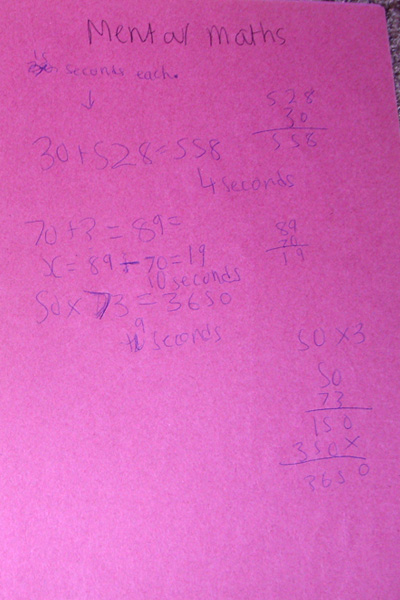 Mental maths
seconds each.
↓
528
30
558
30+528=558
4 seconds
70+?=89=
x=89-70=19
10 seconds
89
70
19
50×73=3650
9 seconds
50×3
50
73
150
350×
3650